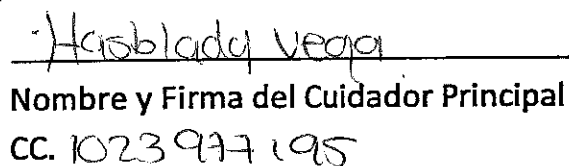 Hasblady Vega
Nombre y Firma del Cuidador Principal
CC. 1023977195